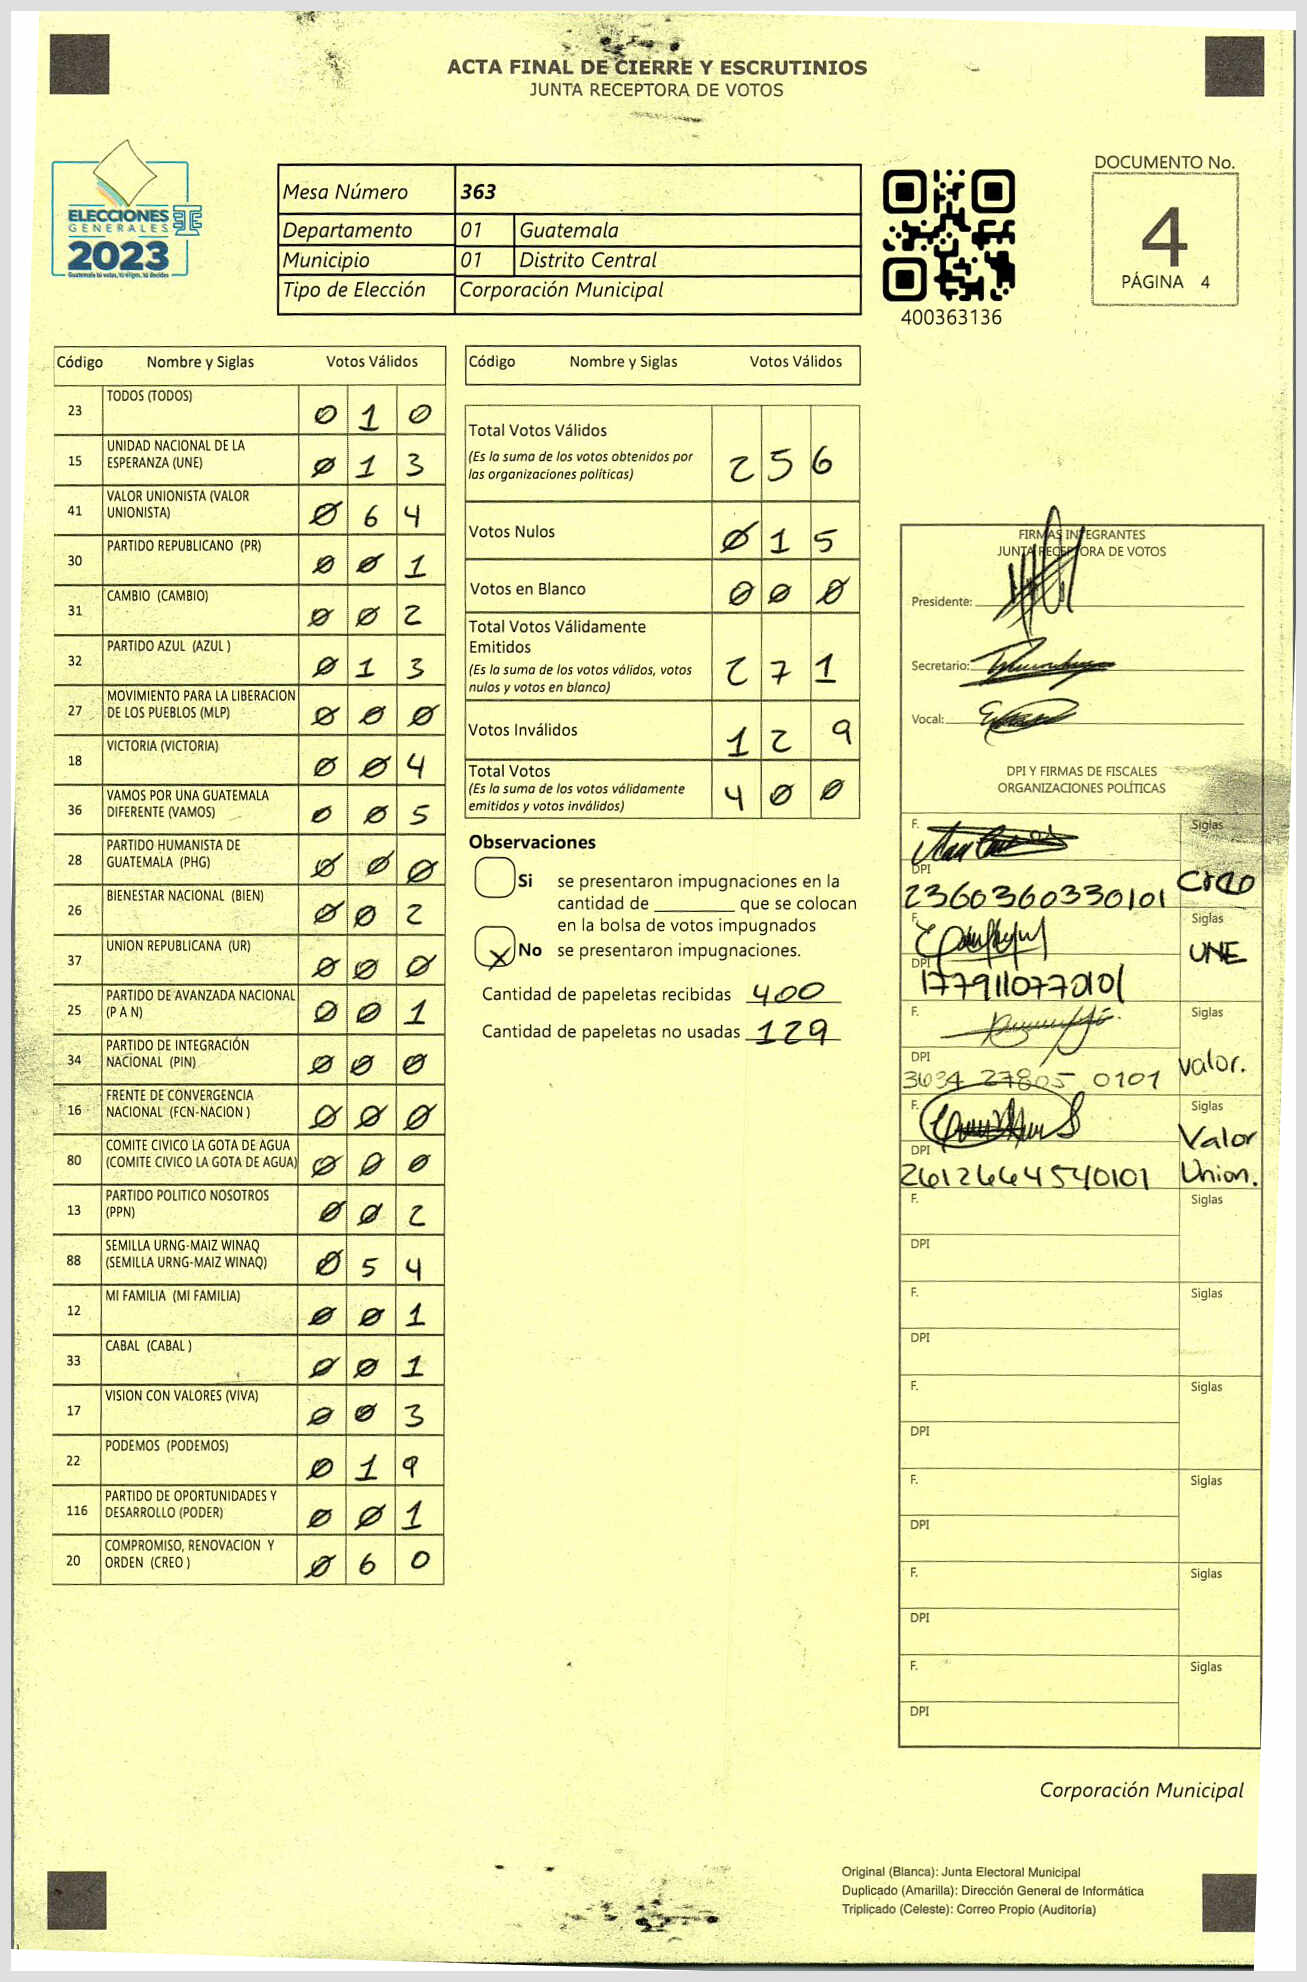 ACTA FINAL DE CIERRE Y ESCRUTINIOS
JUNTA RECEPTORA DE VOTOS
ELECCIONES
GENERALES
2023
Guatemala tú votas, tú eliges, tú decides
Mesa Número 363
Departamento 01 Guatemala
Municipio 01 Distrito Central
Tipo de Elección Corporación Municipal
400363136
DOCUMENTO No.
4
PÁGINA 4
Código Nombre y Siglas Votos Válidos
23 TODOS (TODOS) 0 1 0
15 UNIDAD NACIONAL DE LA ESPERANZA (UNE) 0 1 3
41 VALOR UNIONISTA (VALOR UNIONISTA) 0 6 4
30 PARTIDO REPUBLICANO (PR) 0 0 1
31 CAMBIO (CAMBIO) 0 0 2
32 PARTIDO AZUL (AZUL ) 0 1 3
27 MOVIMIENTO PARA LA LIBERACION DE LOS PUEBLOS (MLP) 0 0 0
18 VICTORIA (VICTORIA) 0 0 4
36 VAMOS POR UNA GUATEMALA DIFERENTE (VAMOS) 0 0 5
28 PARTIDO HUMANISTA DE GUATEMALA (PHG) 0 0 0
26 BIENESTAR NACIONAL (BIEN) 0 0 2
37 UNION REPUBLICANA (UR) 0 0 0
25 PARTIDO DE AVANZADA NACIONAL (P A N) 0 0 1
34 PARTIDO DE INTEGRACIÓN NACIONAL (PIN) 0 0 0
16 FRENTE DE CONVERGENCIA NACIONAL (FCN-NACION ) 0 0 0
80 COMITE CIVICO LA GOTA DE AGUA (COMITE CIVICO LA GOTA DE AGUA) 0 0 0
13 PARTIDO POLITICO NOSOTROS (PPN) 0 0 2
88 SEMILLA URNG-MAIZ WINAQ (SEMILLA URNG-MAIZ WINAQ) 0 5 4
12 MI FAMILIA (MI FAMILIA) 0 0 1
33 CABAL (CABAL ) 0 0 1
17 VISION CON VALORES (VIVA) 0 0 3
22 PODEMOS (PODEMOS) 0 1 9
116 PARTIDO DE OPORTUNIDADES Y DESARROLLO (PODER) 0 0 1
20 COMPROMISO, RENOVACION Y ORDEN (CREO ) 0 6 0
Código Nombre y Siglas Votos Válidos
Total Votos Válidos 2 5 6
(Es la suma de los votos obtenidos por
las organizaciones políticas)
Votos Nulos 0 1 5
Votos en Blanco 0 0 0
Total Votos Válidamente
Emitidos 2 7 1
(Es la suma de los votos válidos, votos
nulos y votos en blanco)
Votos Inválidos 1 2 9
Total Votos 4 0 0
(Es la suma de los votos válidamente
emitidos y votos inválidos)
Observaciones
Si se presentaron impugnaciones en la
cantidad de ________ que se colocan
en la bolsa de votos impugnados
X No se presentaron impugnaciones.
Cantidad de papeletas recibidas 400
Cantidad de papeletas no usadas 129
FIRMAS INTEGRANTES
JUNTA RECEPTORA DE VOTOS
Presidente:
Secretario:
Vocal:
DPI Y FIRMAS DE FISCALES
ORGANIZACIONES POLÍTICAS
F. Siglas
DPI
2360360330101 Creo
F. Siglas
DPI UNE
1779110770101
F. Siglas
DPI
3634 27805 0101 Valor.
F. Siglas
DPI Valor
2612664540101 Union.
F. Siglas
DPI
F. Siglas
DPI
F. Siglas
DPI
F. Siglas
DPI
F. Siglas
DPI
F. Siglas
DPI
Corporación Municipal
Original (Blanca): Junta Electoral Municipal
Duplicado (Amarilla): Dirección General de Informática
Triplicado (Celeste): Correo Propio (Auditoría)